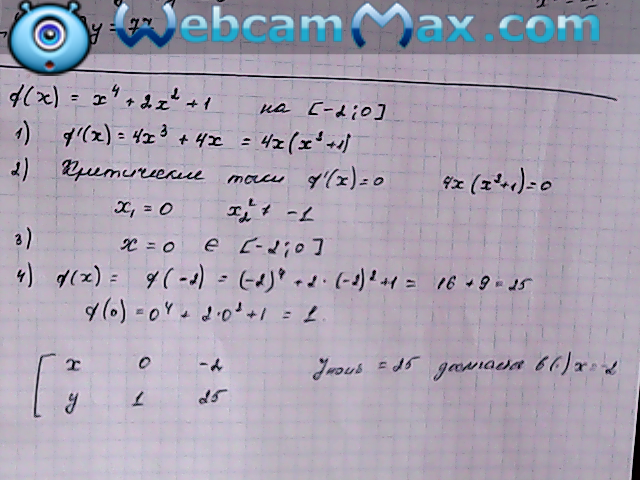 WebcamMax.com
f(x) = x⁴ + 2x² + 1 на [-2; 0]
1) f'(x) = 4x³ + 4x = 4x(x²+1)
2) Критические точки f'(x) = 0 4x(x²+1) = 0
x₁ = 0 x₂² ≠ -1
3) x = 0 ∈ [-2; 0]
4) f(x) = f(-2) = (-2)⁴ + 2·(-2)² + 1 = 16 + 9 = 25
f(0) = 0⁴ + 2·0² + 1 = 1
x 0 -2
y 1 25
yнаиб = 25 в (·) x = -2